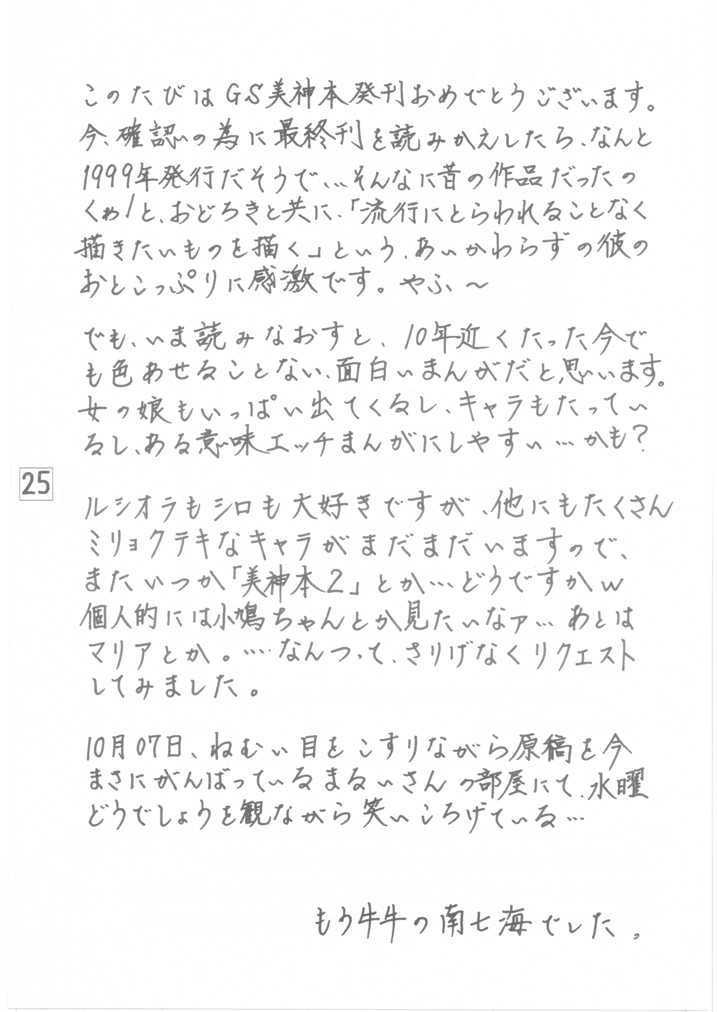 このたびはGS美神本発刊おめでとうございます。
今、確認の為に最終刊を読みかえしたら、なんと
1999年発行だそうで、…そんなに昔の作品だったの
くゎ!と、おどろきと共に、「流行にとらわれることなく
描きたいものを描く」という、あいかわらずの彼の
おとこっぷりに感激です。やふ〜
でも、いま読みなおすと、10年近くたった今で
も色あせることない、面白いまんがだと思います。
女の娘もいっぱい出てくるし、キャラもたってい
るし、ある意味エッチまんがにしやすい…かも?
25
ルシオラもシロも大好きですが、他にもたくさん
ミリョクテキなキャラがまだまだいますので、
またいつか「美神本2」とか…どうですかw
個人的には小鳩ちゃんとか見たいなァ…あとは
マリアとか。….なんつって、さりげなくリクエスト
してみました。
10月07日、ねむい目をこすりながら原稿を今
まさにがんばっているまるいさんの部屋にて、水曜
どうでしょうを観ながら笑いころげている…
もう牛牛の南七海でした。